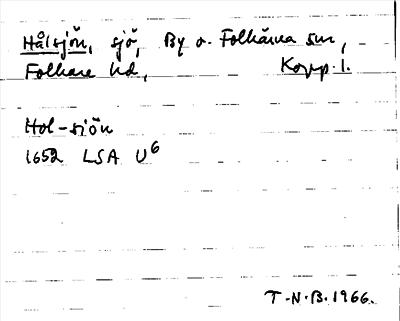 Hålsjön, sjö, By o. Folkärna snr,
Folkare hd, Kopp. l.
Hol-siön
1652 LSA U6
T-N.B. 1966.